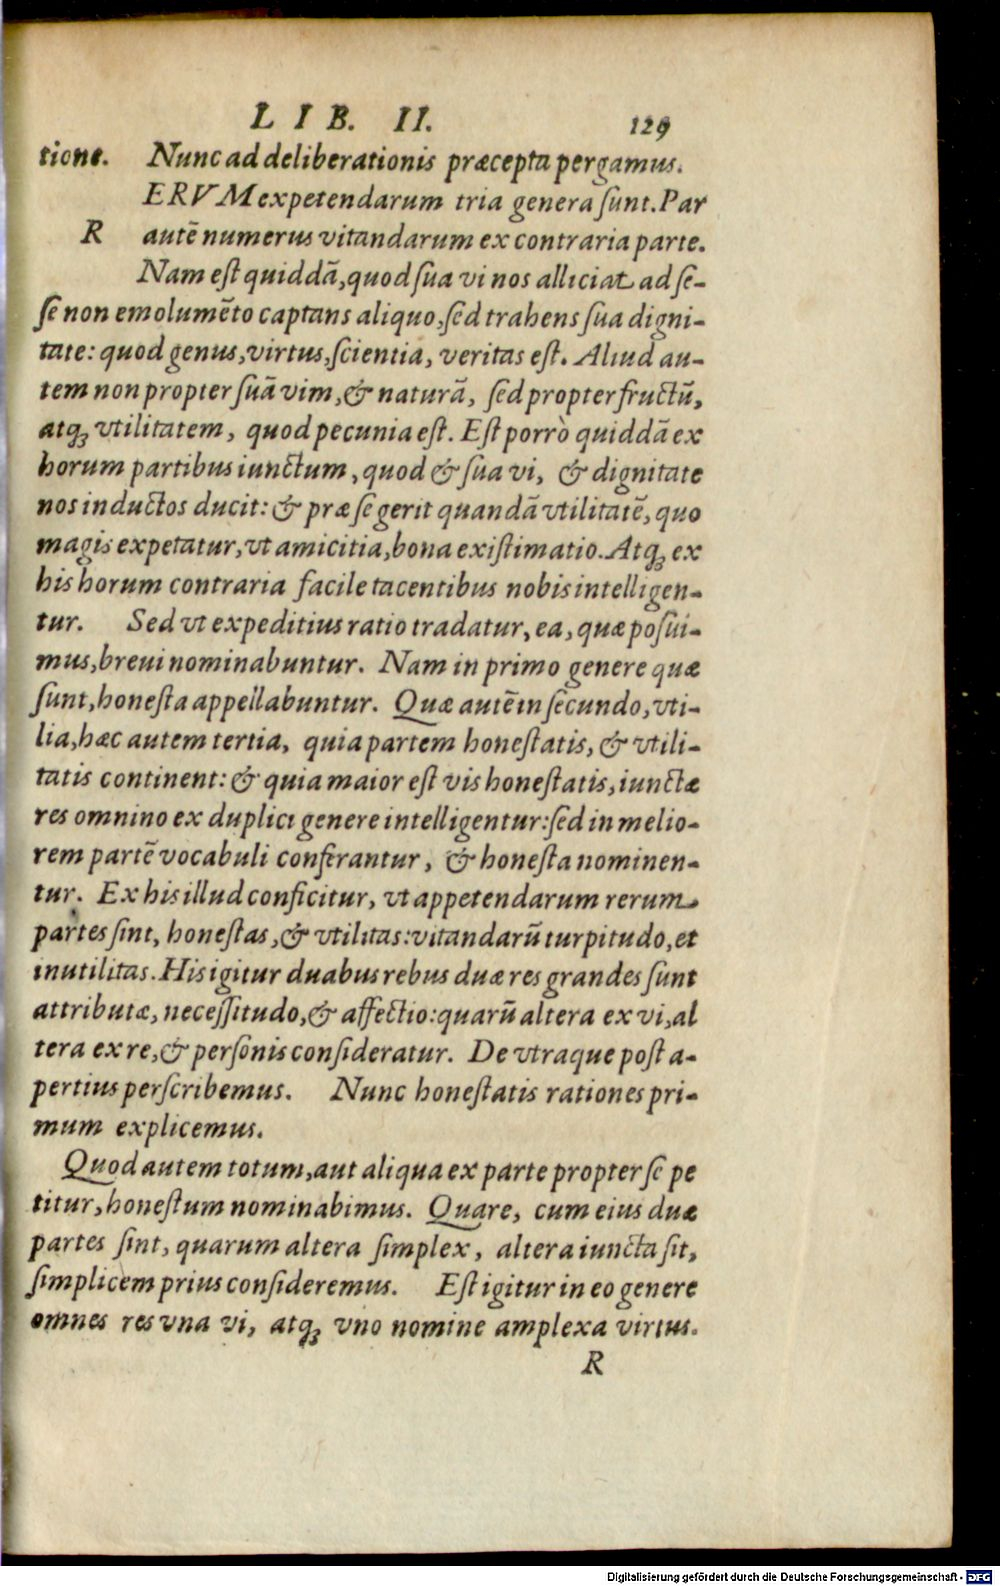 LIB. II. 129
tione. Nunc ad deliberationis præcepta pergamus.
ERVM expetendarum tria genera sunt. Par
R autē numerus vitandarum ex contraria parte.
Nam est quiddā, quod sua vi nos alliciat ad se-
se non emolumēto captans aliquo, sed trahens sua digni-
tate: quod genus, virtus, scientia, veritas est. Aliud au-
tem non propter suā vim, & naturā, sed propter fructū,
atq; vtilitatem, quod pecunia est. Est porrò quiddā ex
horum partibus iunctum, quod & sua vi, & dignitate
nos inductos ducit: & præ se gerit quandā vtilitatē, quo
magis expetatur, vt amicitia, bona existimatio. Atq; ex
his horum contraria facile tacentibus nobis intelligen-
tur. Sed vt expeditius ratio tradatur, ea, quæ posui-
mus, breui nominabuntur. Nam in primo genere quæ
sunt, honesta appellabuntur. Quæ autē in secundo, vti-
lia, hæc autem tertia, quia partem honestatis, & vtili-
tatis continent: & quia maior est vis honestatis, iunctæ
res omnino ex duplici genere intelligentur: sed in melio-
rem partē vocabuli conferantur, & honesta nominen-
tur. Ex his illud conficitur, vt appetendarum rerum
partes sint, honestas, & vtilitas: vitandarū turpitudo, et
inutilitas. His igitur duabus rebus duæ res grandes sunt
attributæ, necessitudo, & affectio: quarū altera ex vi, al
tera ex re, & personis consideratur. De vtraque post a-
pertius perscribemus. Nunc honestatis rationes pri-
mum explicemus.
Quod autem totum, aut aliqua ex parte propter se pe
titur, honestum nominabimus. Quare, cum eius duæ
partes sint, quarum altera simplex, altera iuncta sit,
simplicem prius consideremus. Est igitur in eo genere
omnes res vna vi, atq; vno nomine amplexa virtus.
R
Digitalisierung gefördert durch die Deutsche Forschungsgemeinschaft - DFG